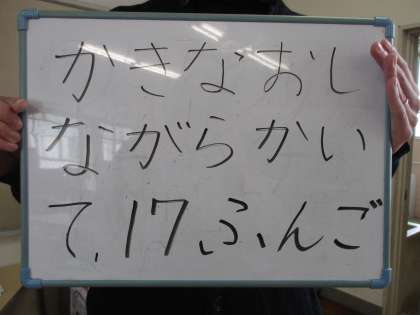 かきなおし
ながらかい
て,17ふんご